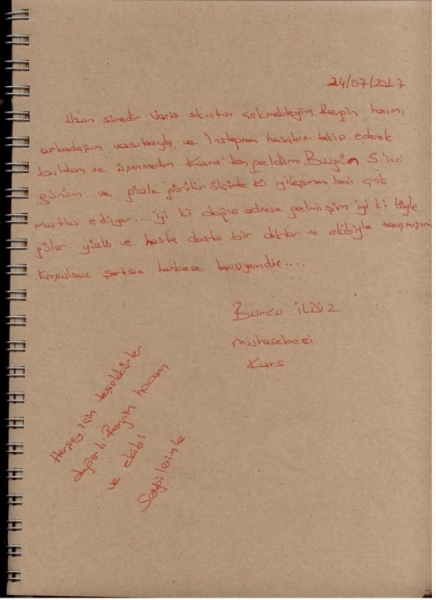 24/07/2017
Uzun süredir varis sıkıntısı çekmekteyim. Reyin hanım,
arkadaşım vasıtasıyla ve Instagram hesabını takip ederek
buldum ve üşenmeden Kars'tan geldim. Bugün 5.inci
günüm ve gözle görülür ölçüde ki iyileşme beni çok
mutlu ediyor.... iyi ki doğru adrese gelmişim iyi ki böyle
güler yüzlü ve hasta dostu bir doktor ve ekibiyle tanışmışım
Koşulsuz şartsız herkese tavsiyemdir....
Burcu
muhasebeci
Kars
Herşey için teşekkürler
değerli hocam
ve ekibi
Saygılarımla